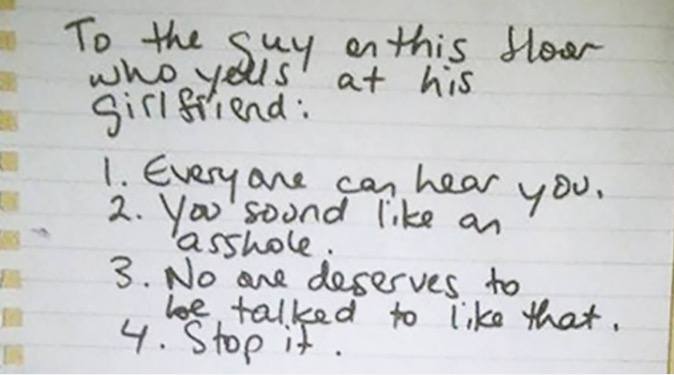 To the guy on this floor
who yells at his
girlfriend:
1. Everyone can hear you.
2. You sound like an
asshole.
3. No one deserves to
be talked to like that.
4. Stop it.